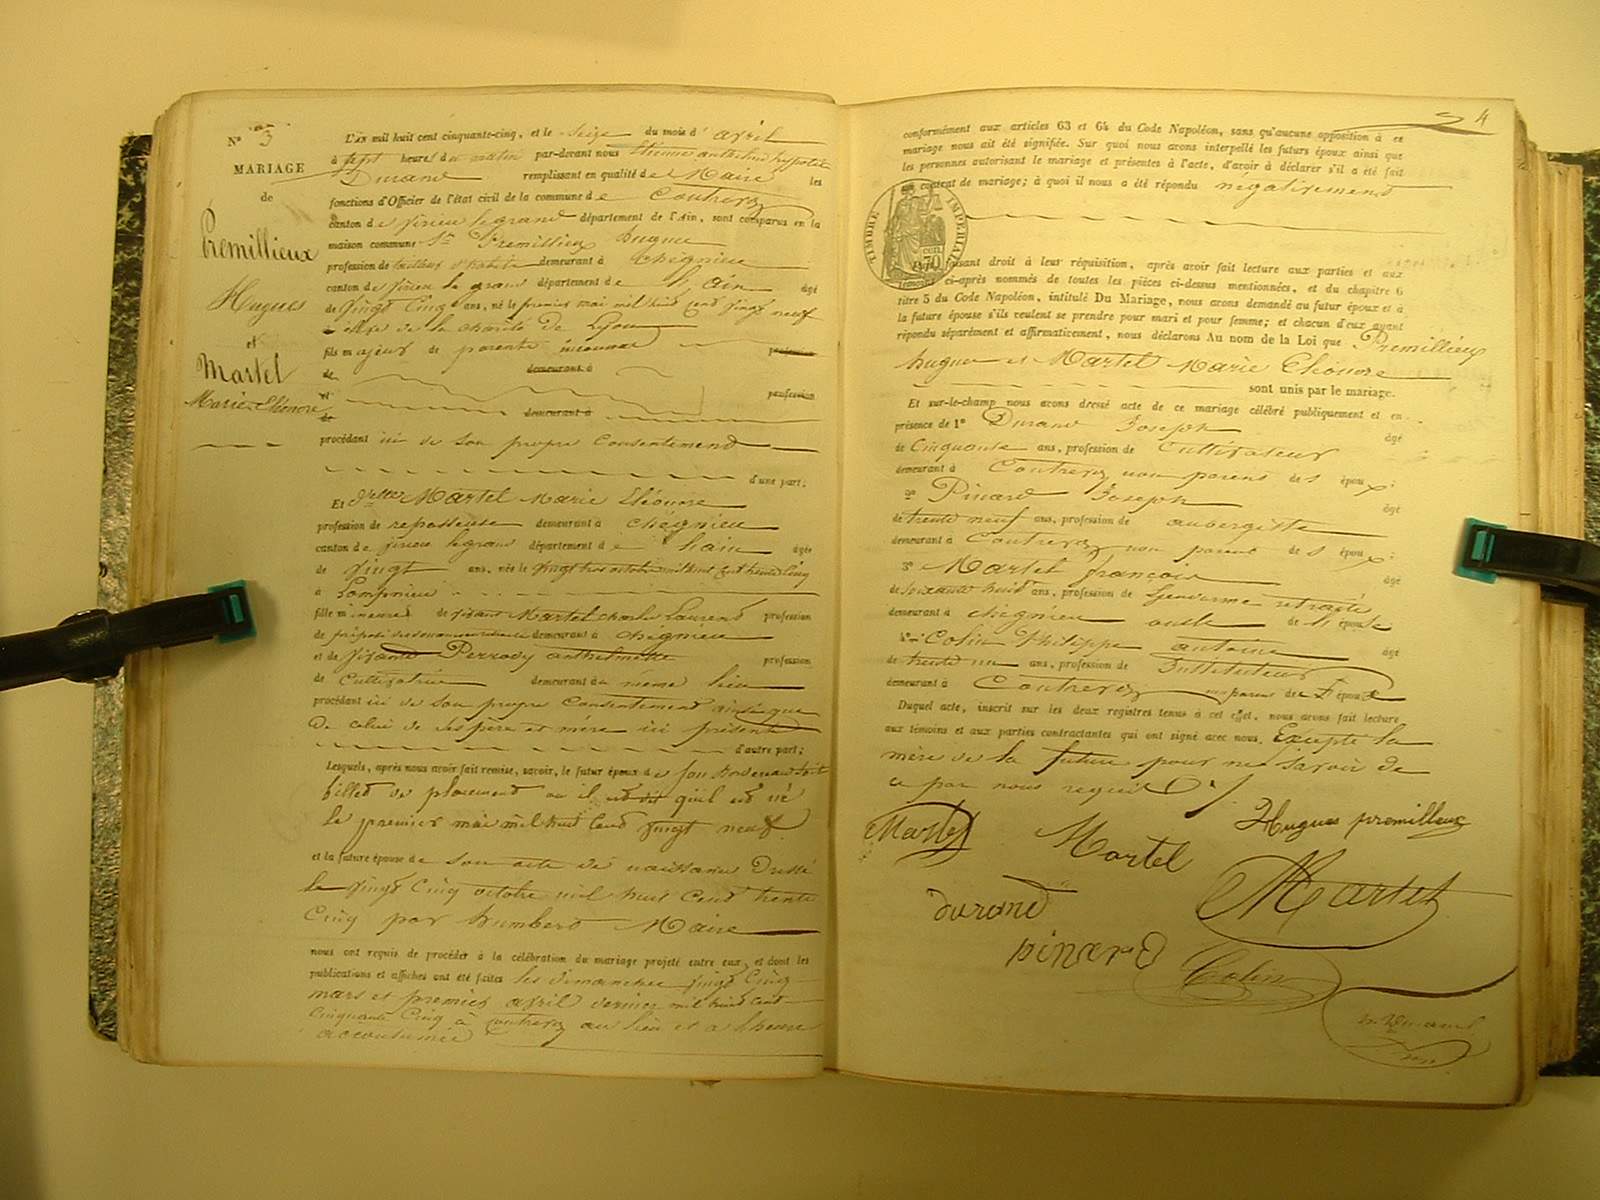 N° 3
MARIAGE
de
Premillieux
Hugues
et
Martel
Marie Eléonore
L'AN mil huit cent cinquante-cinq, et le seize du mois d'avril
à sept heures du matin par-devant nous Etienne anthelme hyppolite
Durand remplissant en qualité de Maire les
fonctions d'Officier de l'état civil de la commune de Contrevoz
canton de Virieu le grand département de l'Ain, sont comparus en la
maison commune Sr Premillieux hugue
profession de tailleur d'habits demeurant à Chégnieu
canton de Virieu le grand département de l'ain âgé
de Vingt Cinq ans, né le premier mai mil huit Cent Vingt neuf
de la charité de Lyon
fils majeur de parents inconnus profession
de demeurant à
et profession
de demeurant à
procédant ici de son propre Consentement
d'une part;
Et Dlle Martel Marie Eléonore
profession de repasseuse demeurant à Chégnieu
canton de Virieu le grand département de l'ain âgée
de Vingt ans, née le Vingt trois octobre mil huit Cent trente Cinq
à Lompnieu
fille mineure de Vivant Martel Charles Laurent profession
de préposé des demeurant à Chégnieu
et de Vivante Perrody anthelmette profession
de Cultivatrice demeurant au même lieu
procédant ici de son propre Consentement ainsi que
De celui de ses père et mère ici présents
d'autre part;
Lesquels, après nous avoir fait remise, savoir, le futur époux de son
billet de placement où il est dit qu'il est né
le premier mai mil huit Cent Vingt neuf
et la future épouse de son acte de naissance Dressé
le Vingt Cinq octobre mil huit Cent trente
Cinq par humbert Maire
nous ont requis de procéder à la célébration du mariage projeté entre eux, et dont les
publications et affiches ont été faites les dimanches Vingt Cinq
mars et premier avril dernier mil huit cent
cinquante Cinq à Contrevoz au lieu et a l'heure
accoutumée
4
conformément aux articles 63 et 64 du Code Napoléon, sans qu'aucune opposition à ce
mariage nous ait été signifiée. Sur quoi nous avons interpellé les futurs époux ainsi que
les personnes autorisant le mariage et présentes à l'acte, d'avoir à déclarer s'il a été fait
un contrat de mariage; à quoi il nous a été répondu négativement
TIMBRE IMPERIAL
70 cen
Faisant droit à leur réquisition, après avoir fait lecture aux parties et aux
témoins ci-après nommés de toutes les pièces ci-dessus mentionnées, et du chapitre 6
titre 5 du Code Napoléon, intitulé Du Mariage, nous avons demandé au futur époux et à
la future épouse s'ils veulent se prendre pour mari et pour femme; et chacun d'eux ayant
répondu séparément et affirmativement, nous déclarons Au nom de la Loi que Premillieux
hugue et Martel Marie Eléonore
sont unis par le mariage.
Et sur-le-champ nous avons dressé acte de ce mariage célébré publiquement et en
présence de 1° Durand Joseph âgé
de Cinquante ans, profession de Cultivateur
demeurant à Contrevoz non parens des époux;
2° Pinard Joseph âgé
de trente neuf ans, profession de aubergiste
demeurant à Contrevoz non parent des époux;
3° Martel françois âgé
de soixante huit ans, profession de Gendarme retraité
demeurant à Chégnieu oncle de l'épouse
4° Colin Philippe antoine âgé
de trente un ans, profession de Instituteur
demeurant à Contrevoz non parens des époux
Duquel acte, inscrit sur les deux registres tenus à cet effet, nous avons fait lecture
aux témoins et aux parties contractantes qui ont signé avec nous. Excepté la
mère de la future pour ne savoir de
ce par nous requis
Martel Martel Hugues premillieux
durand Martel
pinard Colin